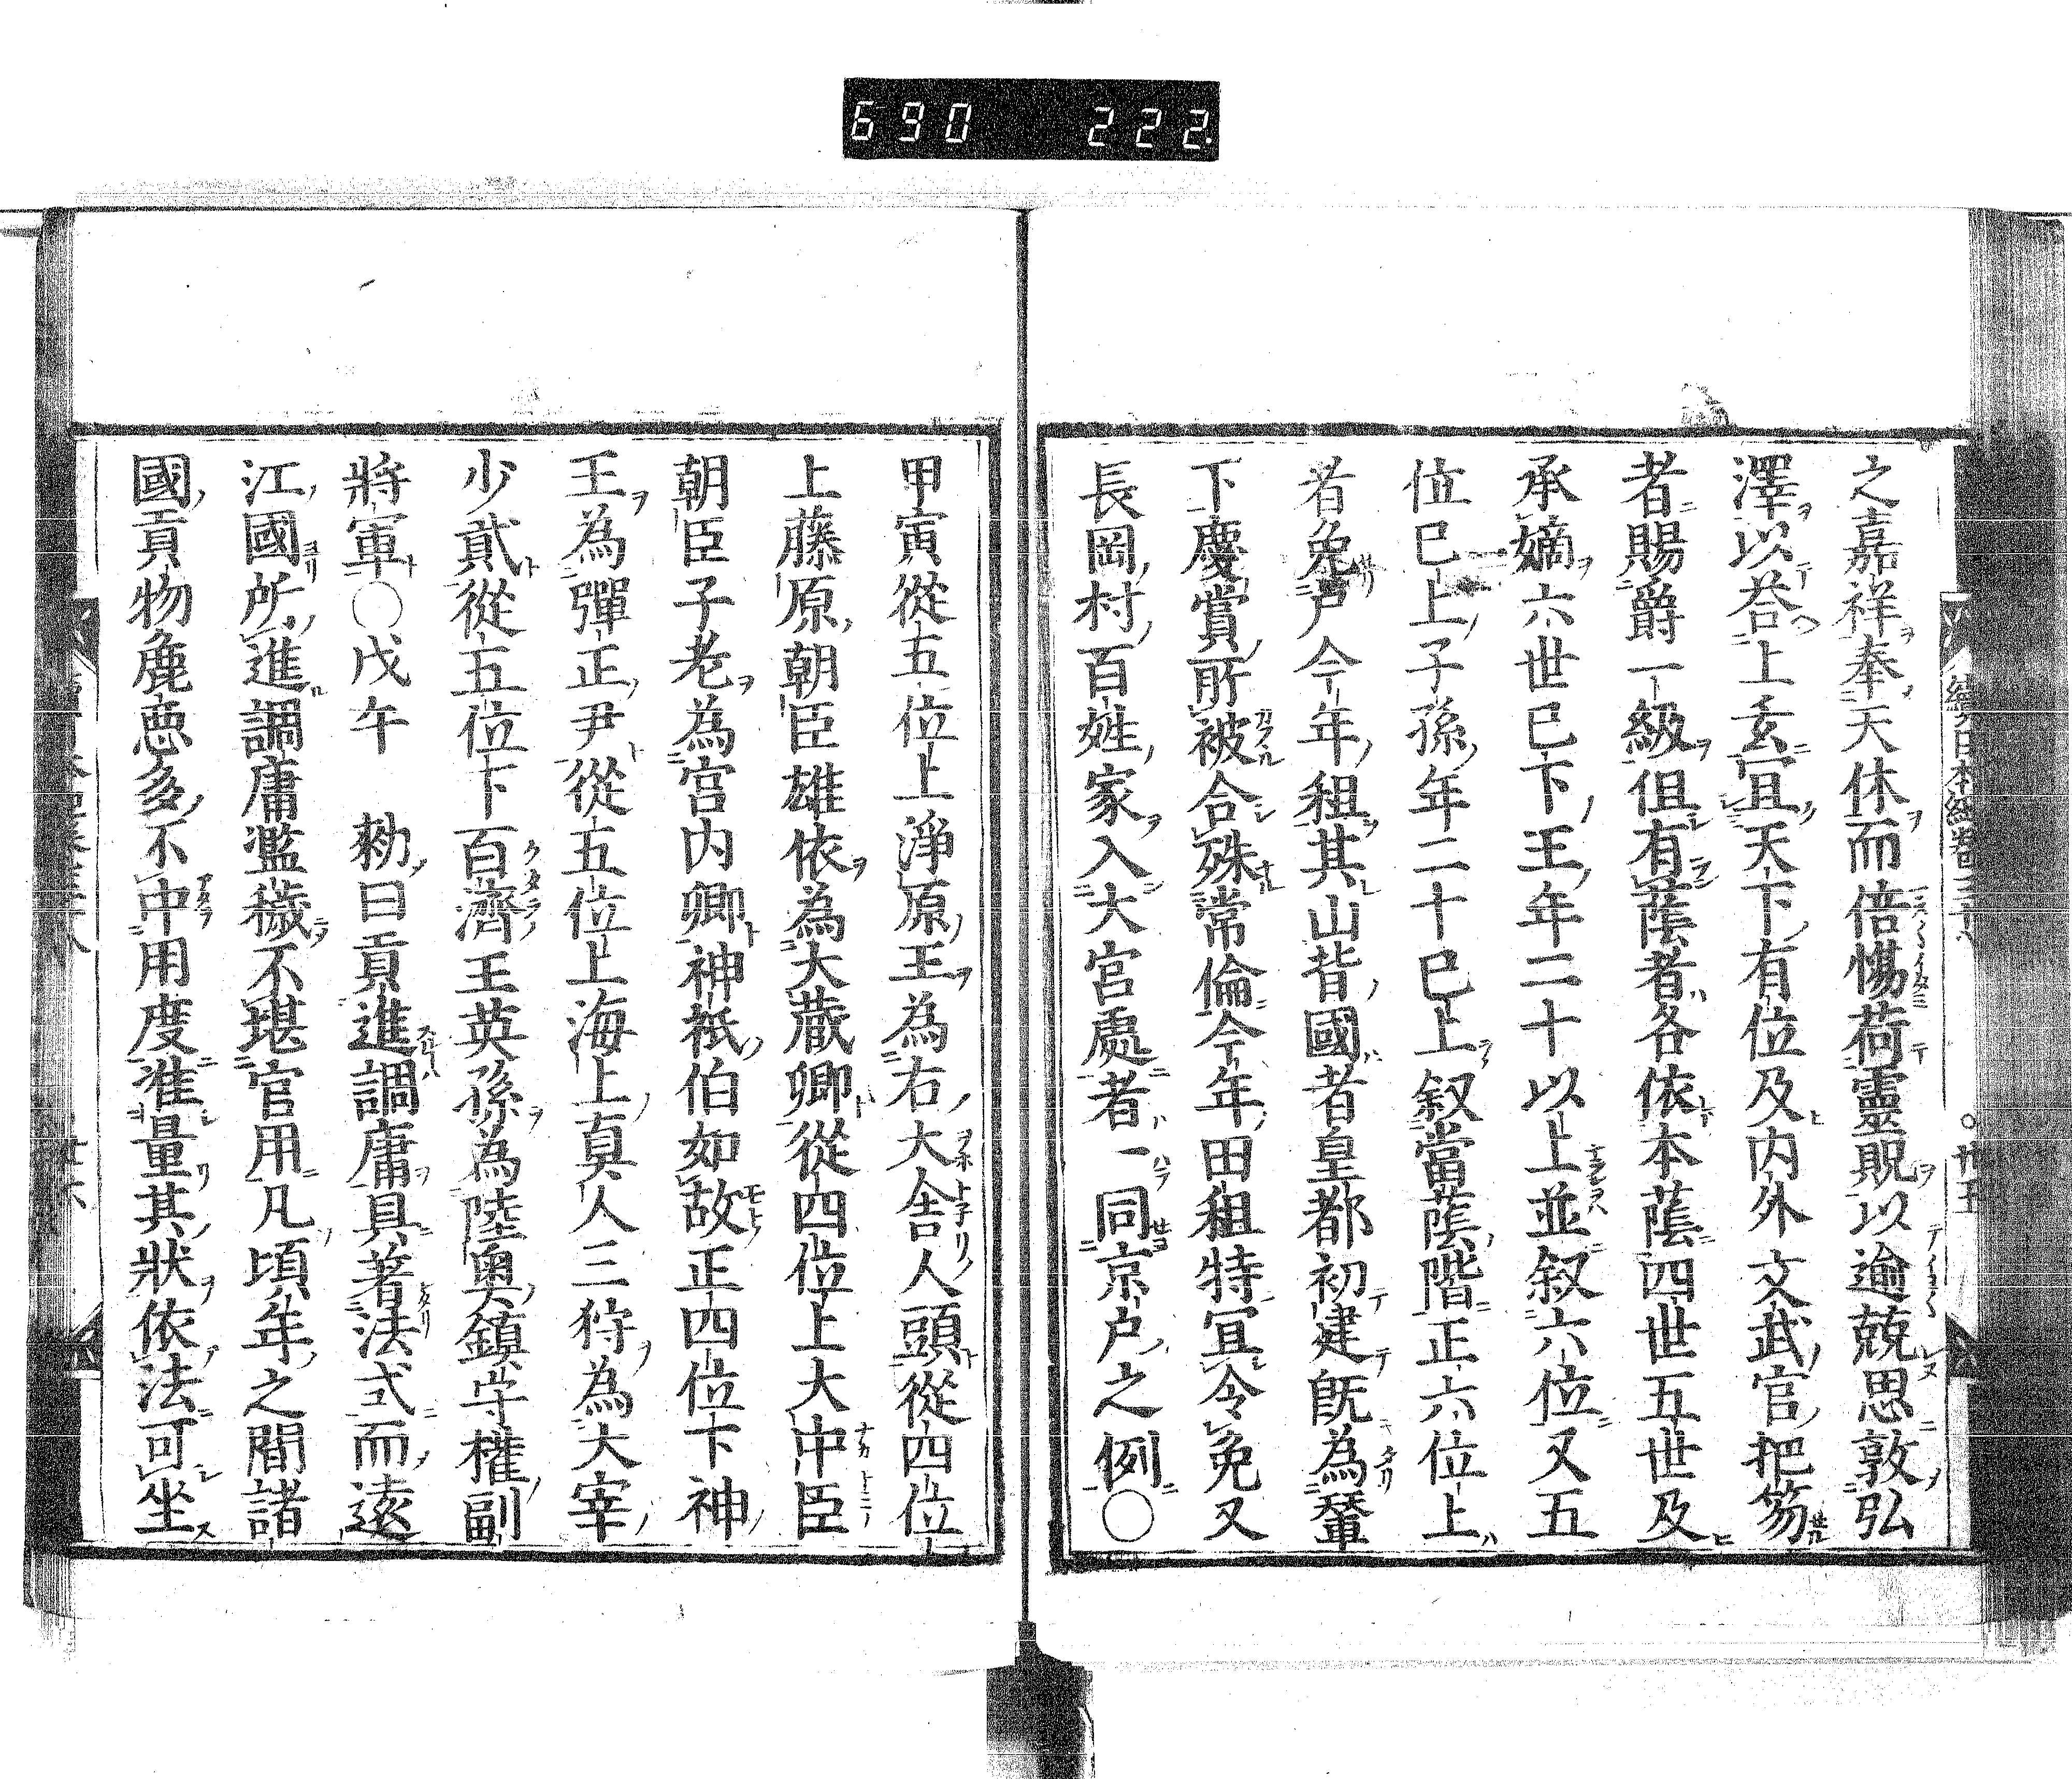 690 222
之嘉祥奉天休而倍惕荷靈貺以逾兢思敦弘
澤以荅上玄宜天下有位及内外文武官把笏
者賜爵一級但有蔭者各依本蔭四世五世及
承嫡六世已下王年二十以上並叙六位又五
位已上子孫年二十已上叙當蔭階正六位上
者免戸今年租其山背國者皇都初建既為輦
下慶賞所被合殊常倫今年田租特宜令免又
長岡村百姓家入大宮處者一同京戸之例〇
甲寅從五位上淨原王為右大舎人頭從四位上
上藤原朝臣雄依為大藏卿從四位上大中臣
朝臣子老為宮内卿神祇伯如故正四位下神
王為彈正尹從五位上海上真人三狩為大宰
少貳從五位下百濟王英孫為陸奥鎮守權副
將軍〇戊午 勑曰貢進調庸具著法式而遠
江國所進調庸濫穢不堪官用凡頃年之間諸
國貢物麁悪多不中用度准量其狀依法可坐